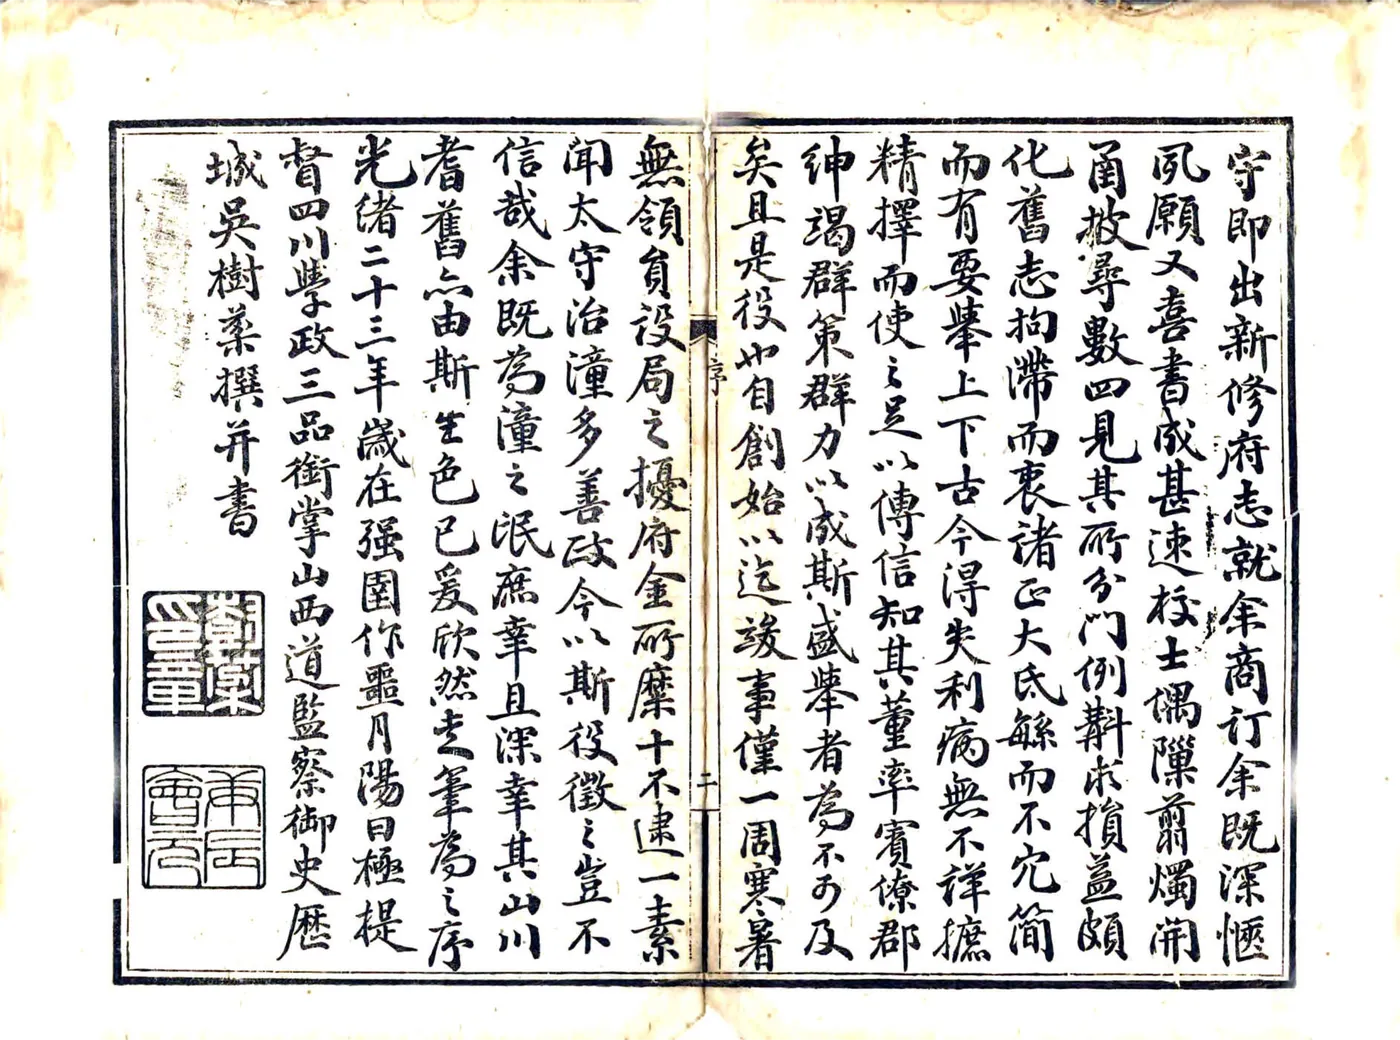 守即出新修府志就余商訂余既深愜
夙願又喜書成甚速校士偶隟翦燭開
函披尋數四見其所分門例斠求損益頗
化舊志拘滯而衷諸正大氐緐而不冗簡
而有要舉上下古今得失利病無不詳摭
精擇而使之足以傳信知其董率賓僚郡
紳竭群策群力以成斯盛舉者為不可及
矣且是役也自創始以迄竣事僅一周寒暑
序
二
無領負設局之擾府金所糜十不逮一素
聞太守治潼多善政今以斯役徵之豈不
信哉余既為潼之氓庶幸且深幸其山川
耆舊亦由斯生色已爰欣然走筆為之序
光緒二十三年歲在强圉作噩月陽曰極提
督四川學政三品銜掌山西道監察御史歷
城吳樹棻撰并書